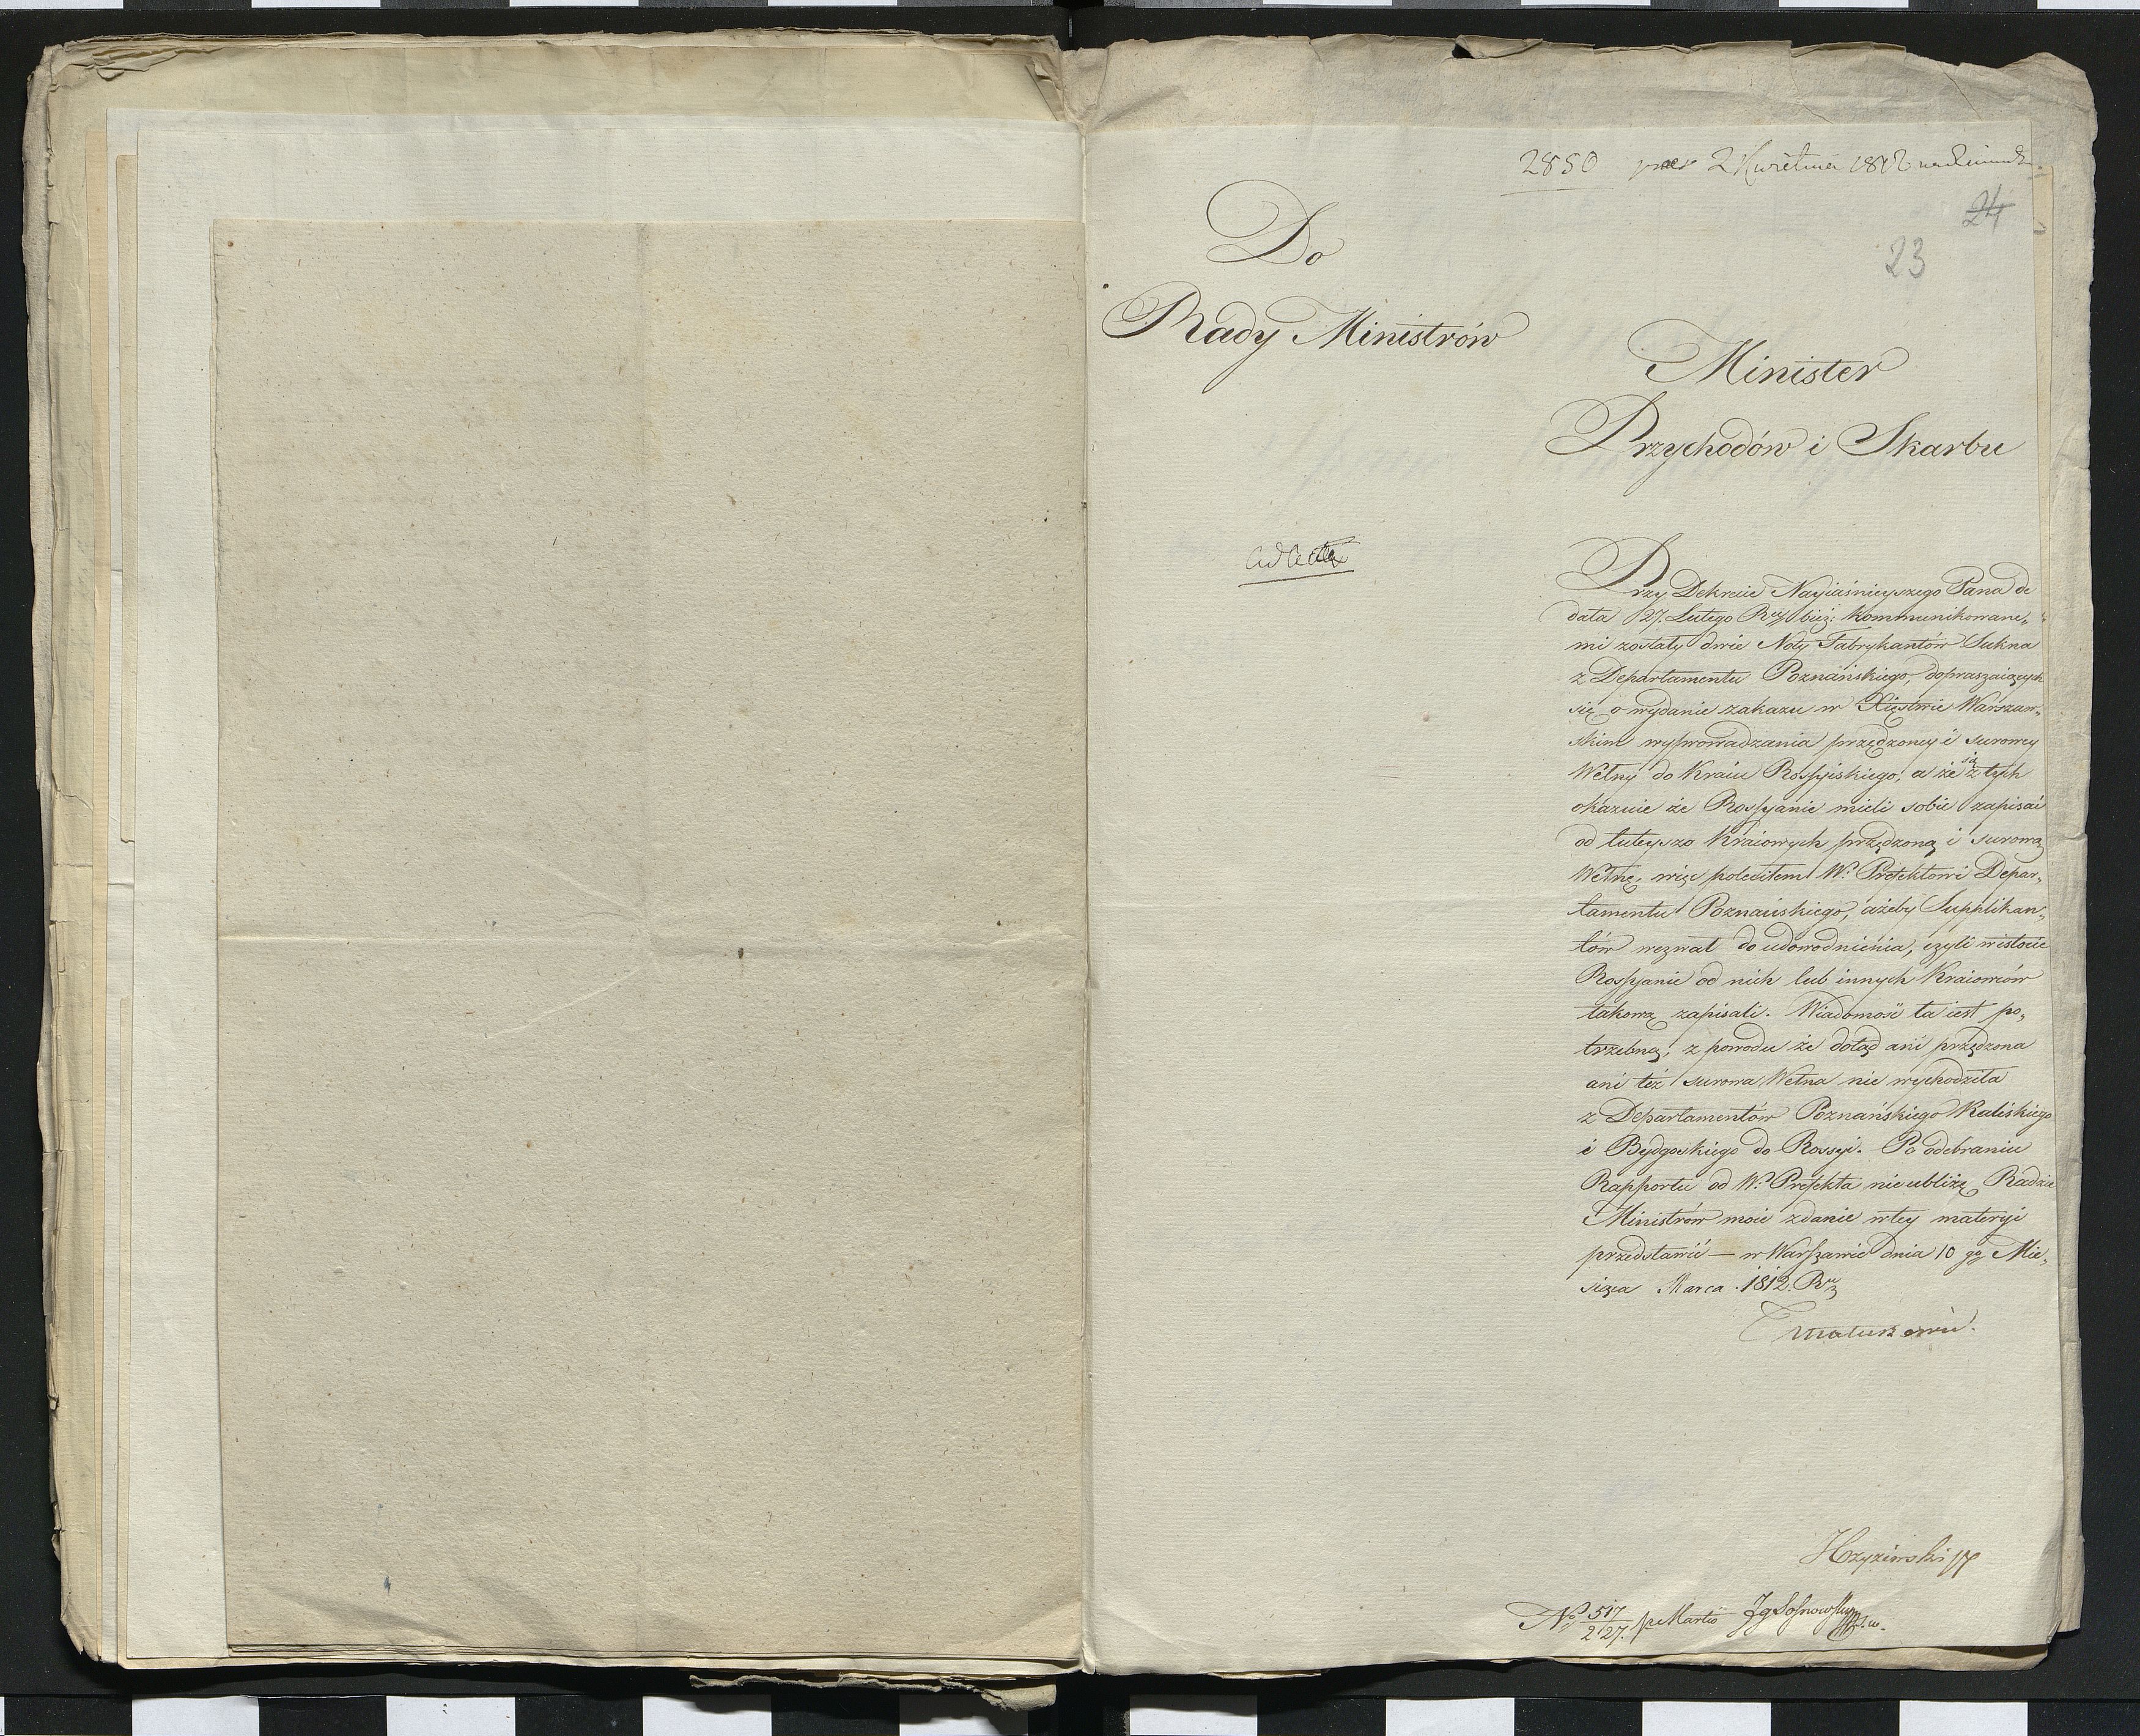 2850 praes 2 Kwietnia 1812
24
23
Do
Rady Ministrów
Minister
Przychodów i Skarbu
ad acta
Przy Dekrecie Nayiaśnieyszego Pana de
data 27. Lutego Ru bież: kommunikowane„
mi zostały dwie Noty Fabrykantów Sukna
z Departamentu Poznańskiego, dopraszaiących
się o wydanie zakazu w Xięstwie Warszaw„
skim wyprowadzania przędzoney i surowey
Wełny do Kraiu Rossyiskiego, a że się z tych
okazuie że Rossyanie mieli sobie zapisać
od tuteyszo Kraiowych przędzoną i surową
Wełnę, więc poleciłem W. Prefektowi Depar„
tamentu Poznańskiego, ażeby Supplikan„
tów wezwał do udowodnienia, czyli wistocie
Rossyanie od nich lub innych Kraiowców
takową zapisali. Wiadomość ta iest po„
trzebną, z powodu że dotąd ani przędzona
ani też surowa Wełna nie wychodziła
z Departamentów Poznańskiego Kaliskiego
i Bydgoskiego do Rossyi. Po odebraniu
Rapportu od W. Prefekta nieubliżę Radzie
Ministrów moie zdanie wtey materyi
przedstawić — w Warszawie dnia 10 go Mie„
siąca Marca 1812. Ru
TMatuszewic.
No 517/2127. p Martio Jg Sosnowski